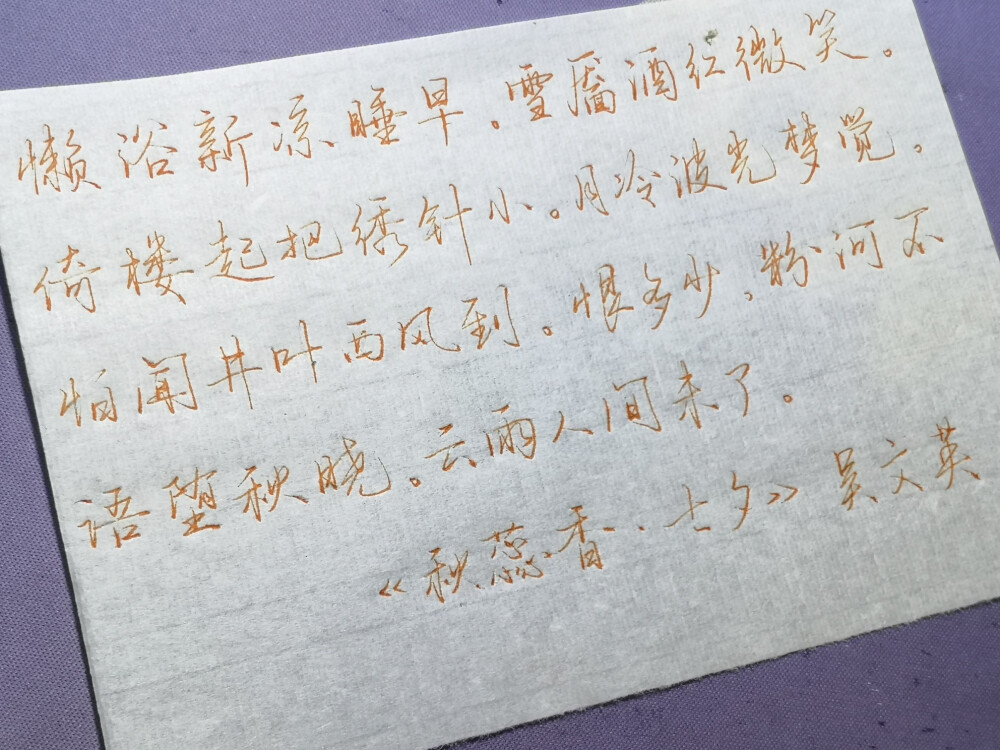 懒浴新凉睡早。雪靥酒红微笑。
倚楼起把绣针小。月冷波光梦觉。
怕闻井叶西风到。恨多少。粉河不
语堕秋晓。云雨人间未了。
《秋蕊香·七夕》吴文英